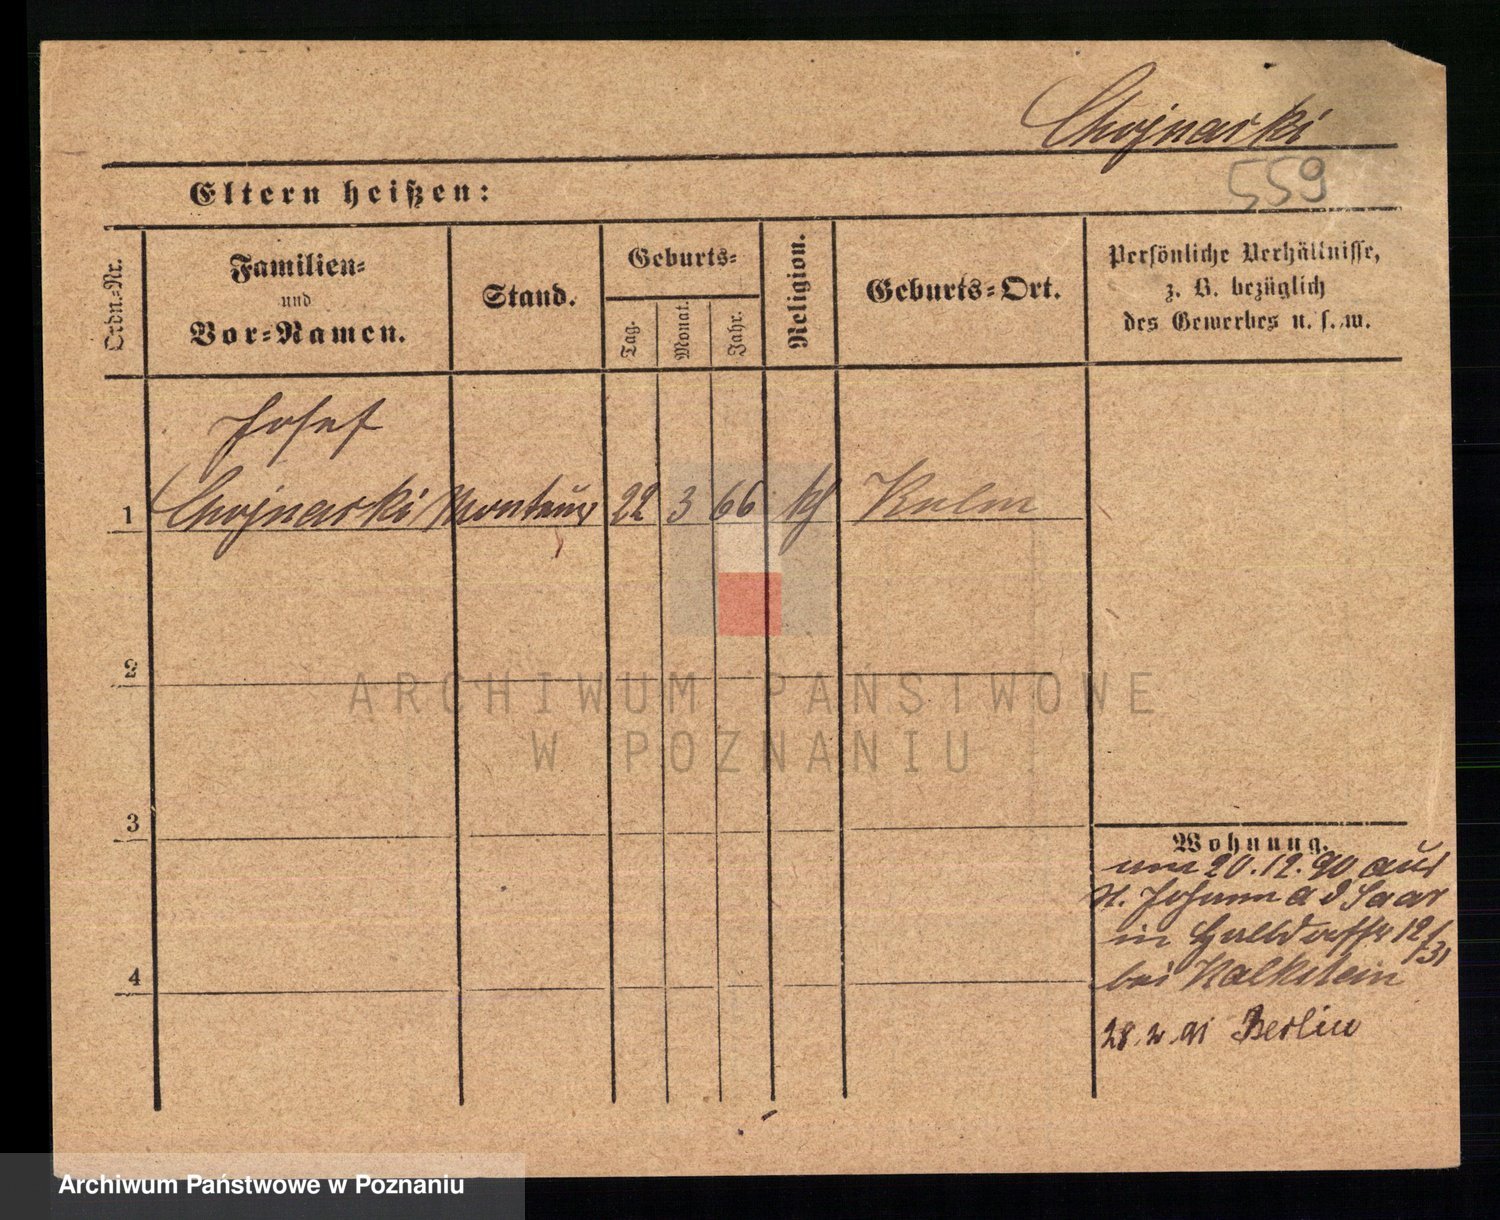 Chojnacki
559
Eltern heißen:
Ordn.-Nr.
Familien-
und
Vor-Namen.
Stand.
Geburts-
Tag.
Monat.
Jahr.
Religion.
Geburts-Ort.
Persönliche Verhältnisse,
z. B. bezüglich
des Gewerbes u. s. w.
Josef
1 Chojnacki Monteur 22 3 66 kf Kulm
2
3
4
Wohnung.
20.12.90 aus
St. Johann a d Saar
in Halbdorfstr 12/31
bei Kalkstein
28.2.91 Berlin
ARCHIWUM PAŃSTWOWE
W POZNANIU
Archiwum Państwowe w Poznaniu